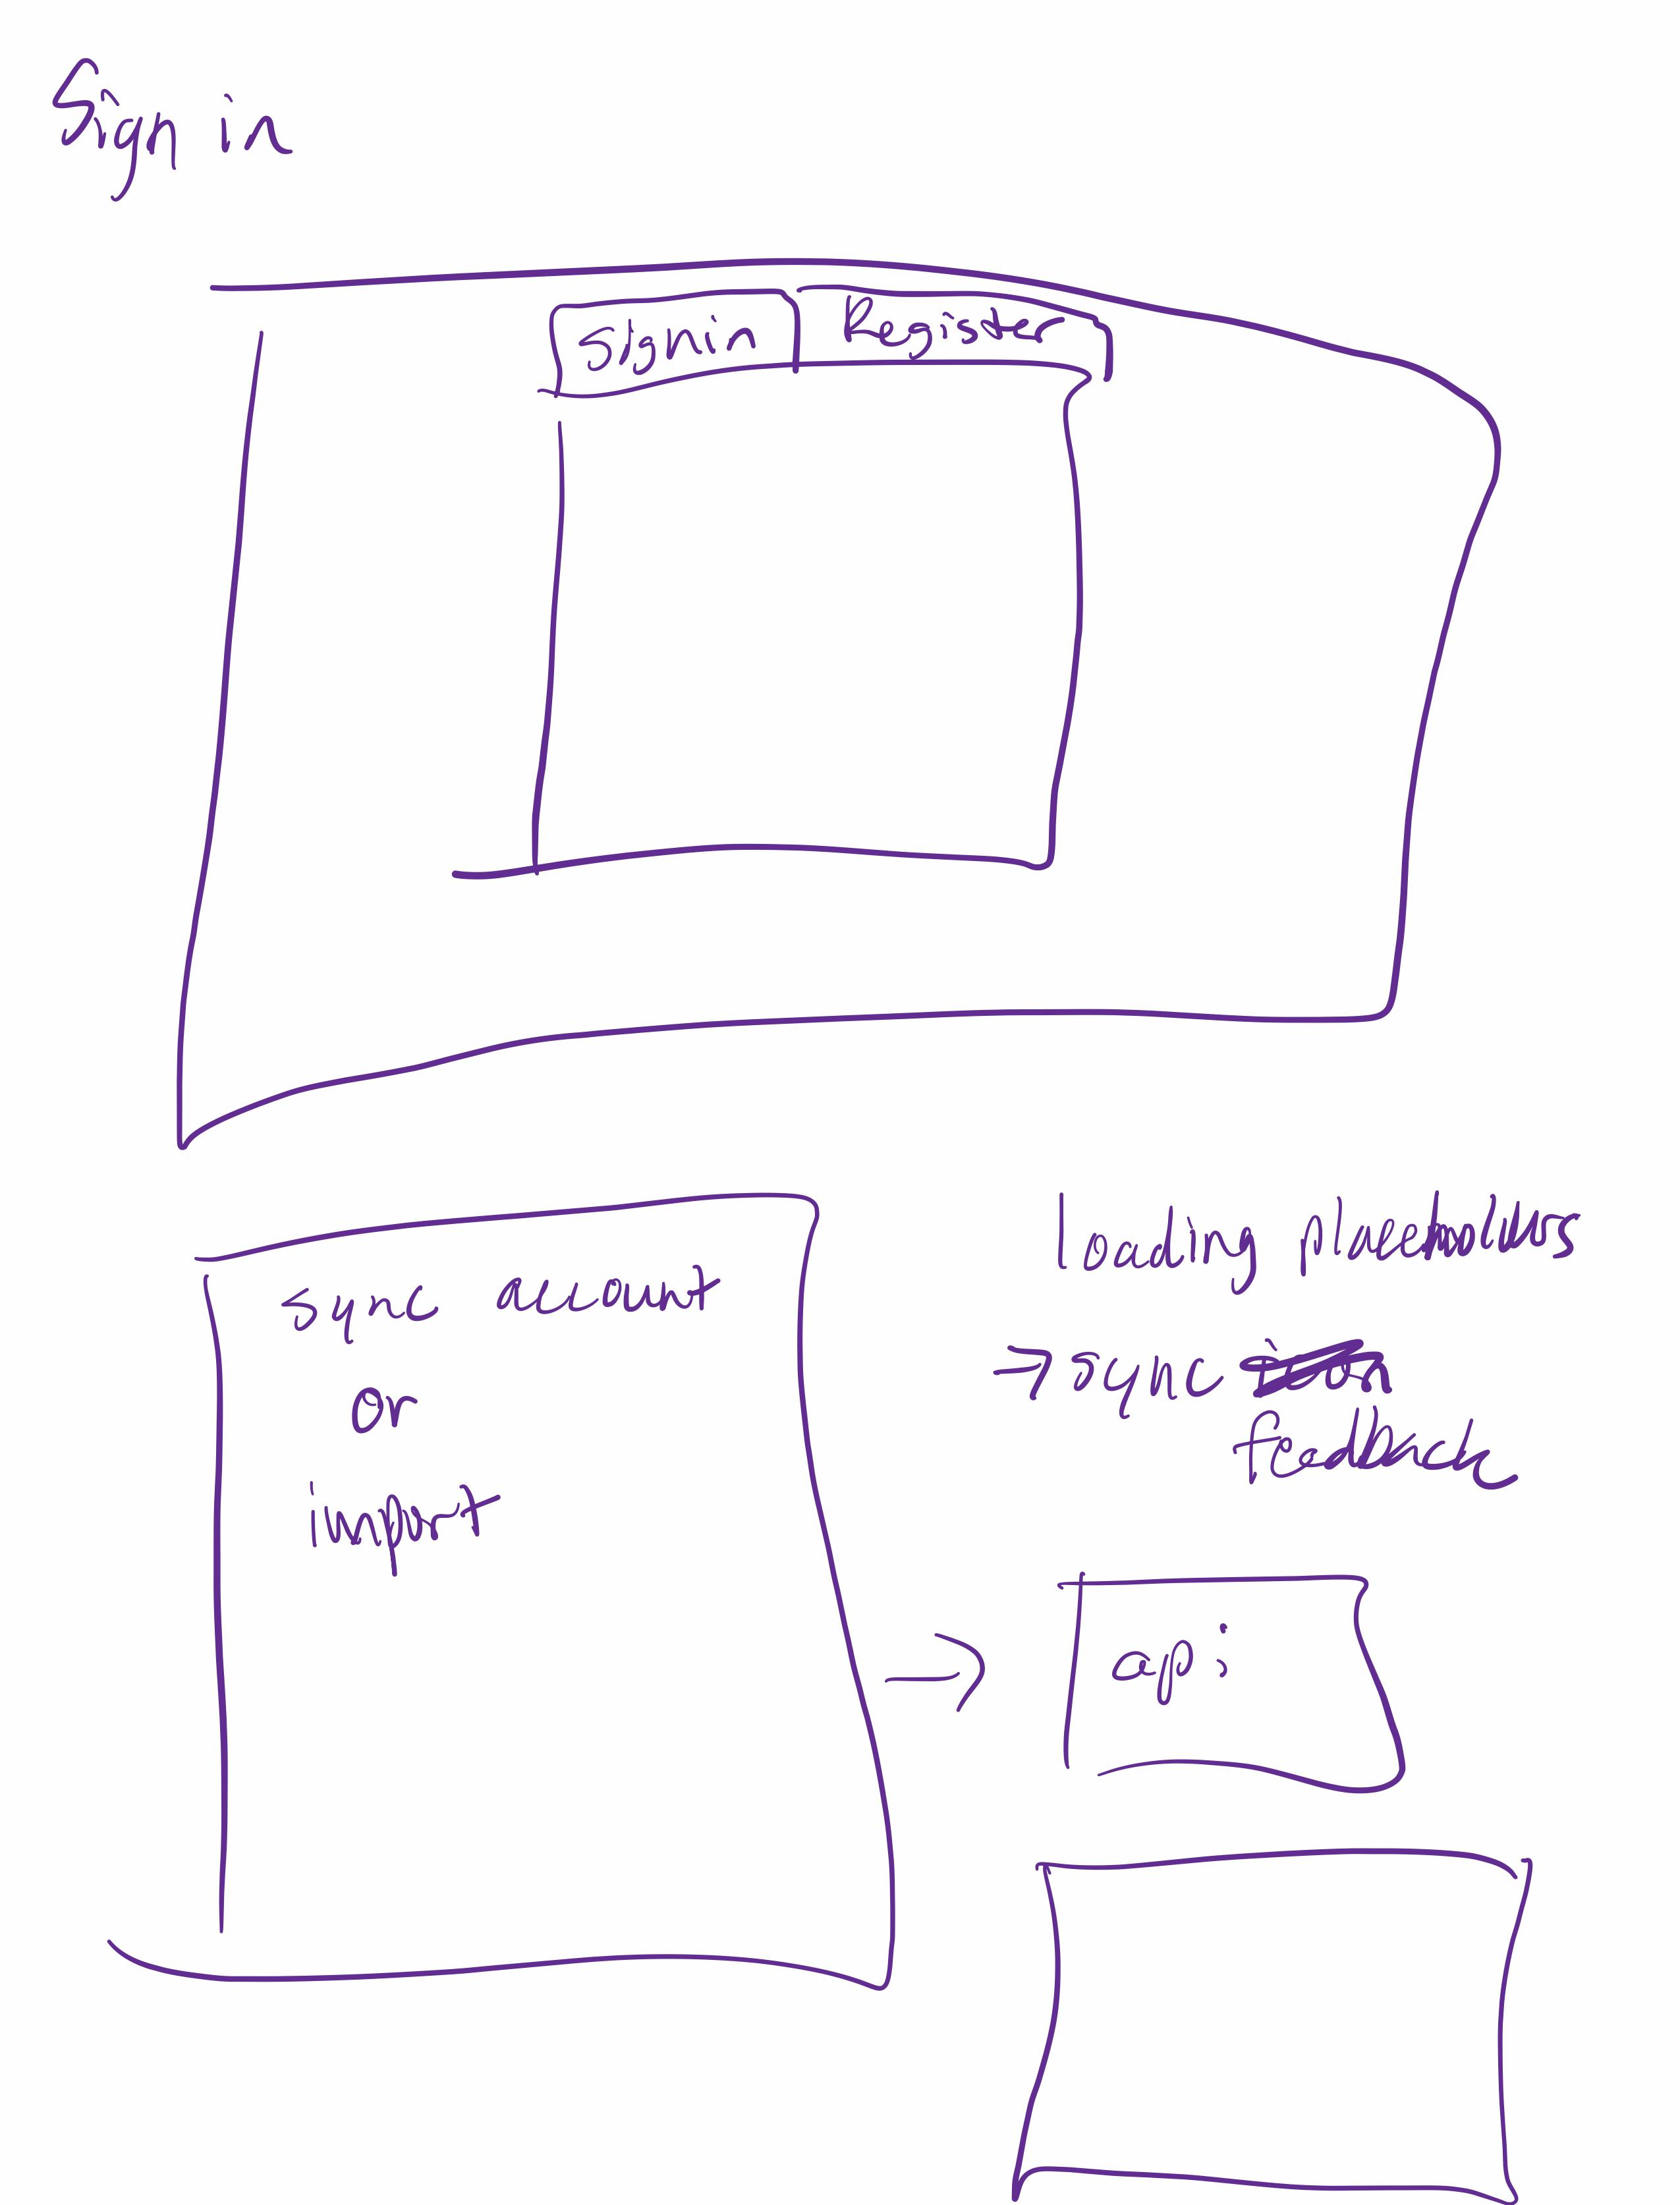 Sign in
Signin
Register
sync account
or
import
loading placeholders
→ sync
feedback
api